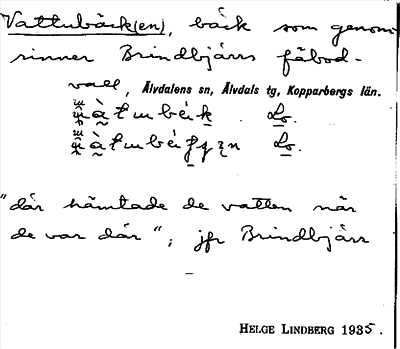 Vattubäck(en), bäck som genom-
rinner Brindbjärrs fäbod-
vall, Älvdalens sn, Älvdals tg, Kopparbergs län.
Lo.
Lo.
"där hämtade de vatten när
de var där"; jfr Brindbjärr
HELGE LINDBERG 1935.